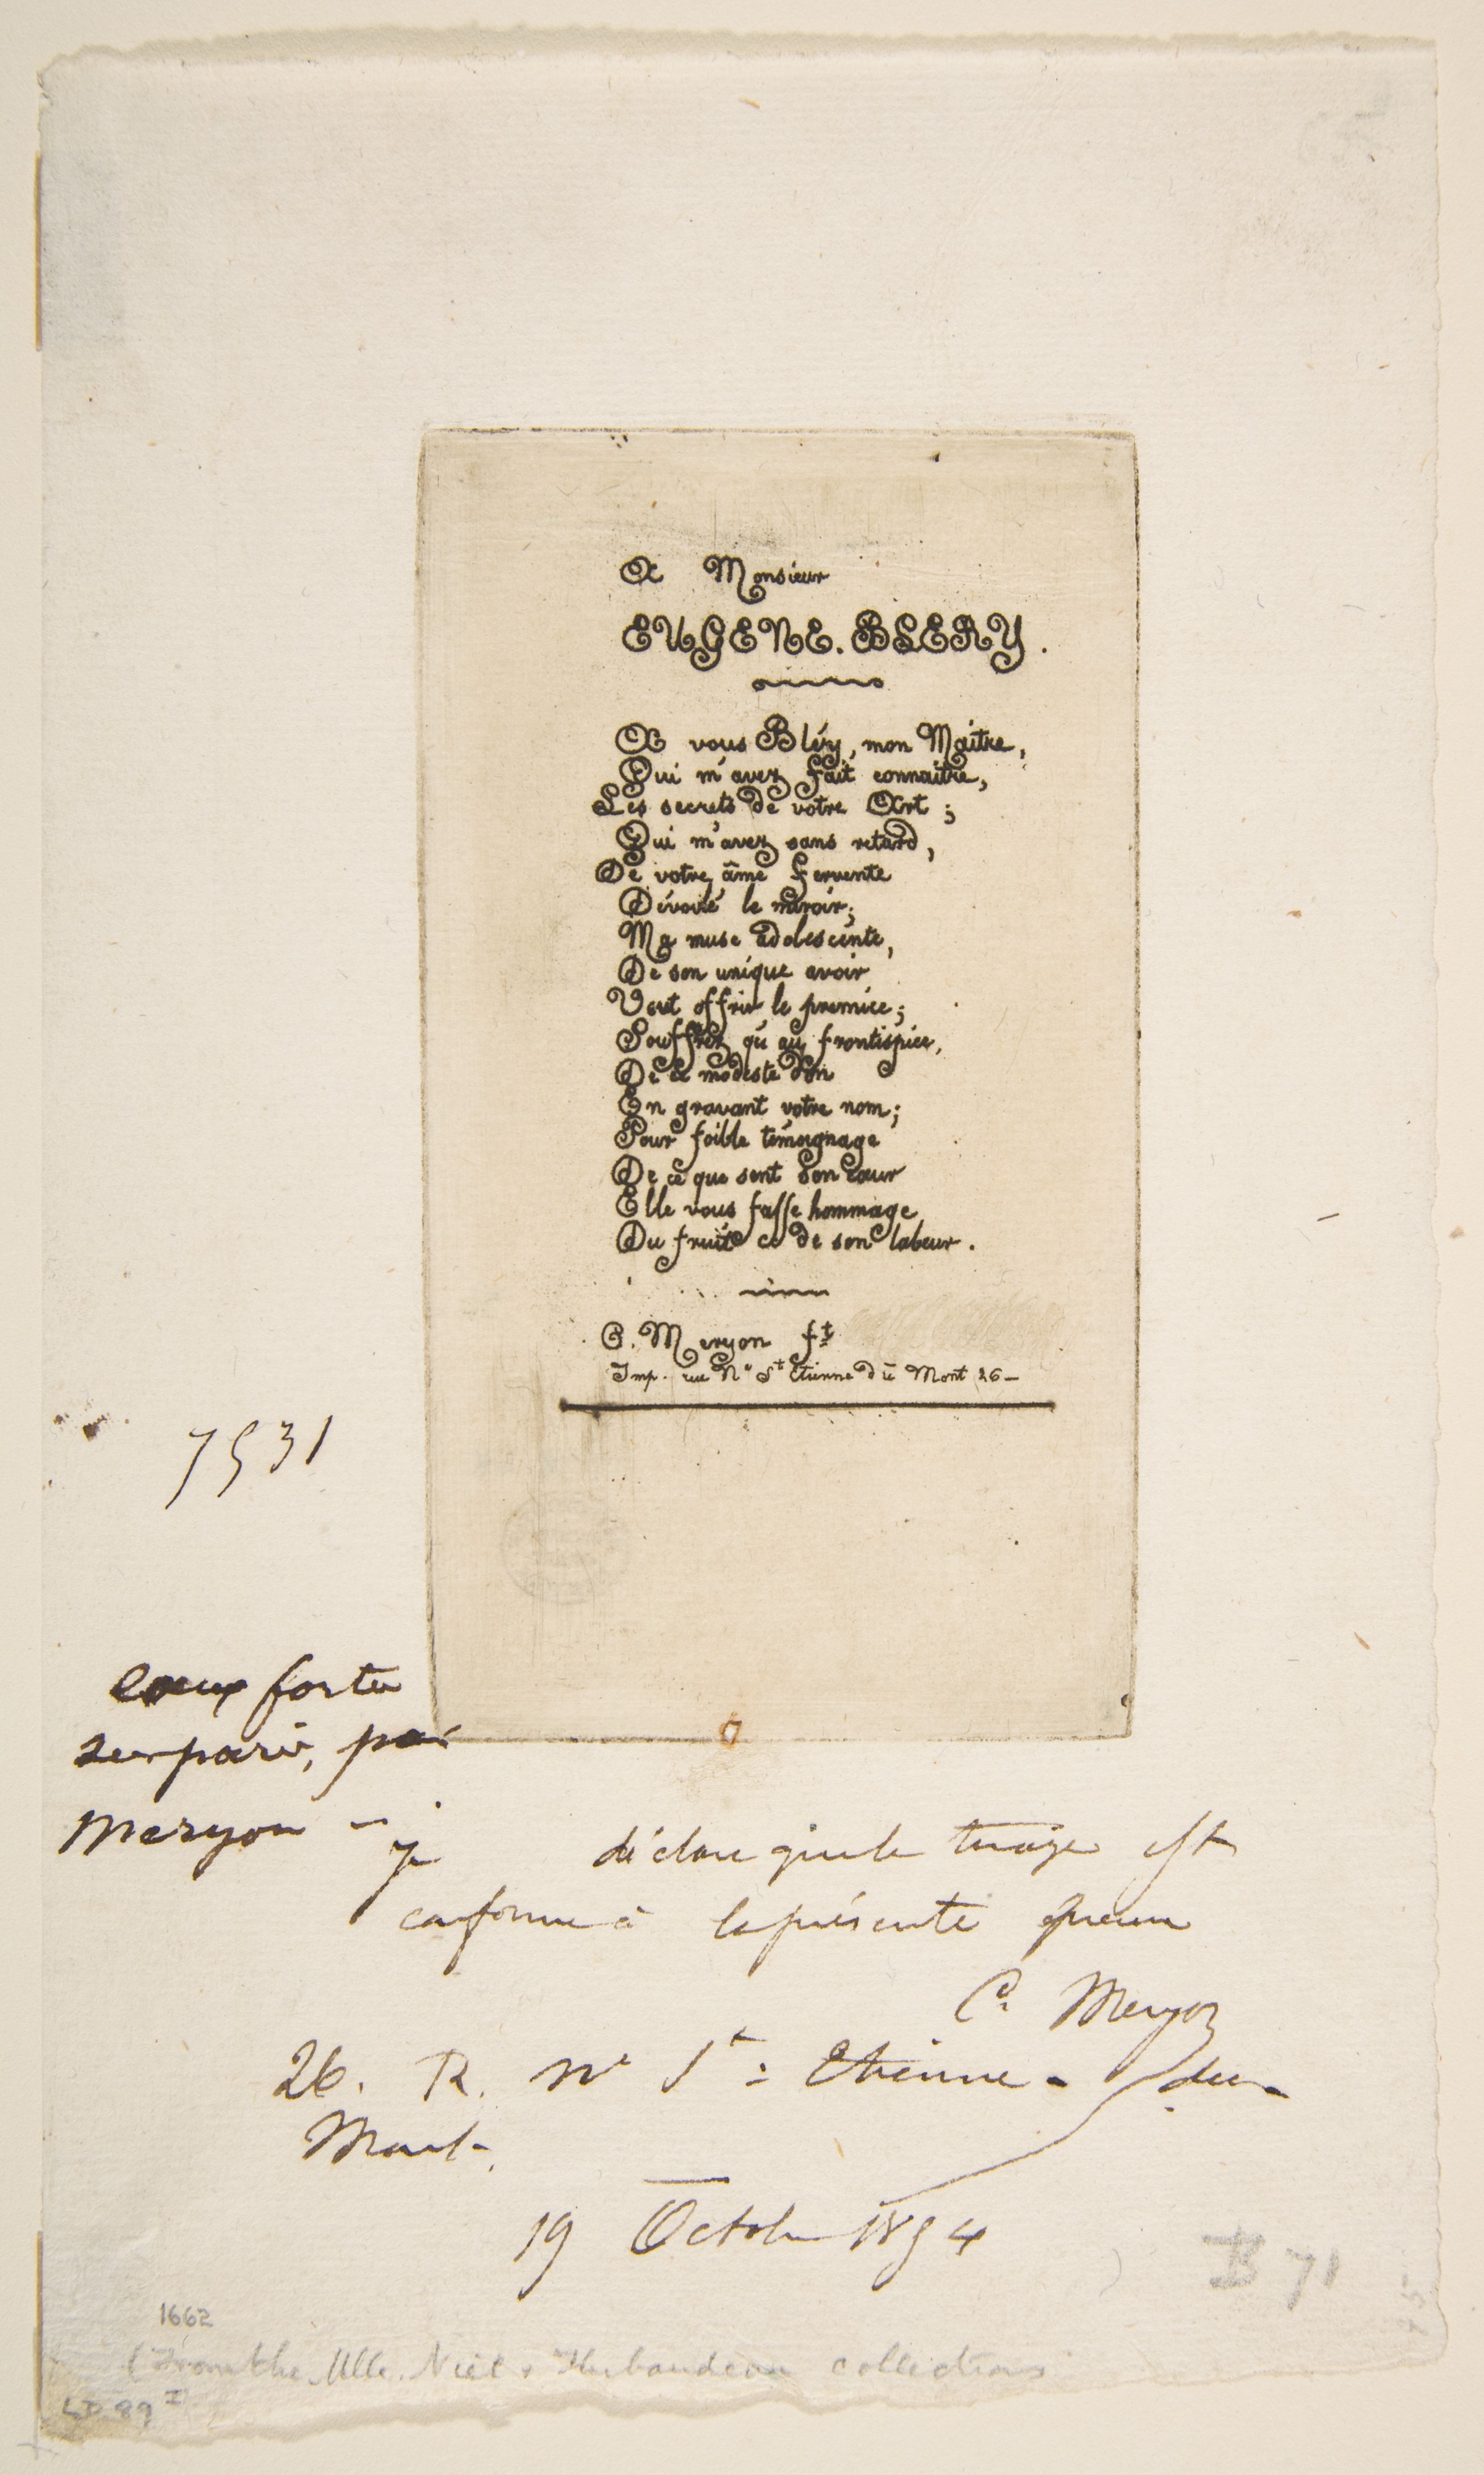 A Monsieur
EUGENE. BLERY.
A vous Bléry, mon Maitre,
Qui m'avez fait connaitre,
Les secrets de votre Art ;
Qui m'avez sans retard,
De votre âme fervente
Dévoilé le miroir;
Ma muse adolescente,
De son unique avoir
Veut offrir le premice;
Souffrez qu'au frontispice,
De ce modeste don
En gravant votre nom;
Pour foible témoignage
De ce que sent son cœur
Elle vous fasse hommage
Du fruit ce de son labeur.
C. Meryon ft
Imp. rue Ne St Etienne du Mont 26-
7531
eaux fortes
sur paris, par
Meryon -
je déclare que le tirage est
conforme à la présente épreuve
C. Meryon
26. R. Ne St: Etienne - du -
Mont.
19 Octobre 1854
B 71
1662
(From the Mlle. Niel & Thibaudeau collections
LD 89 I